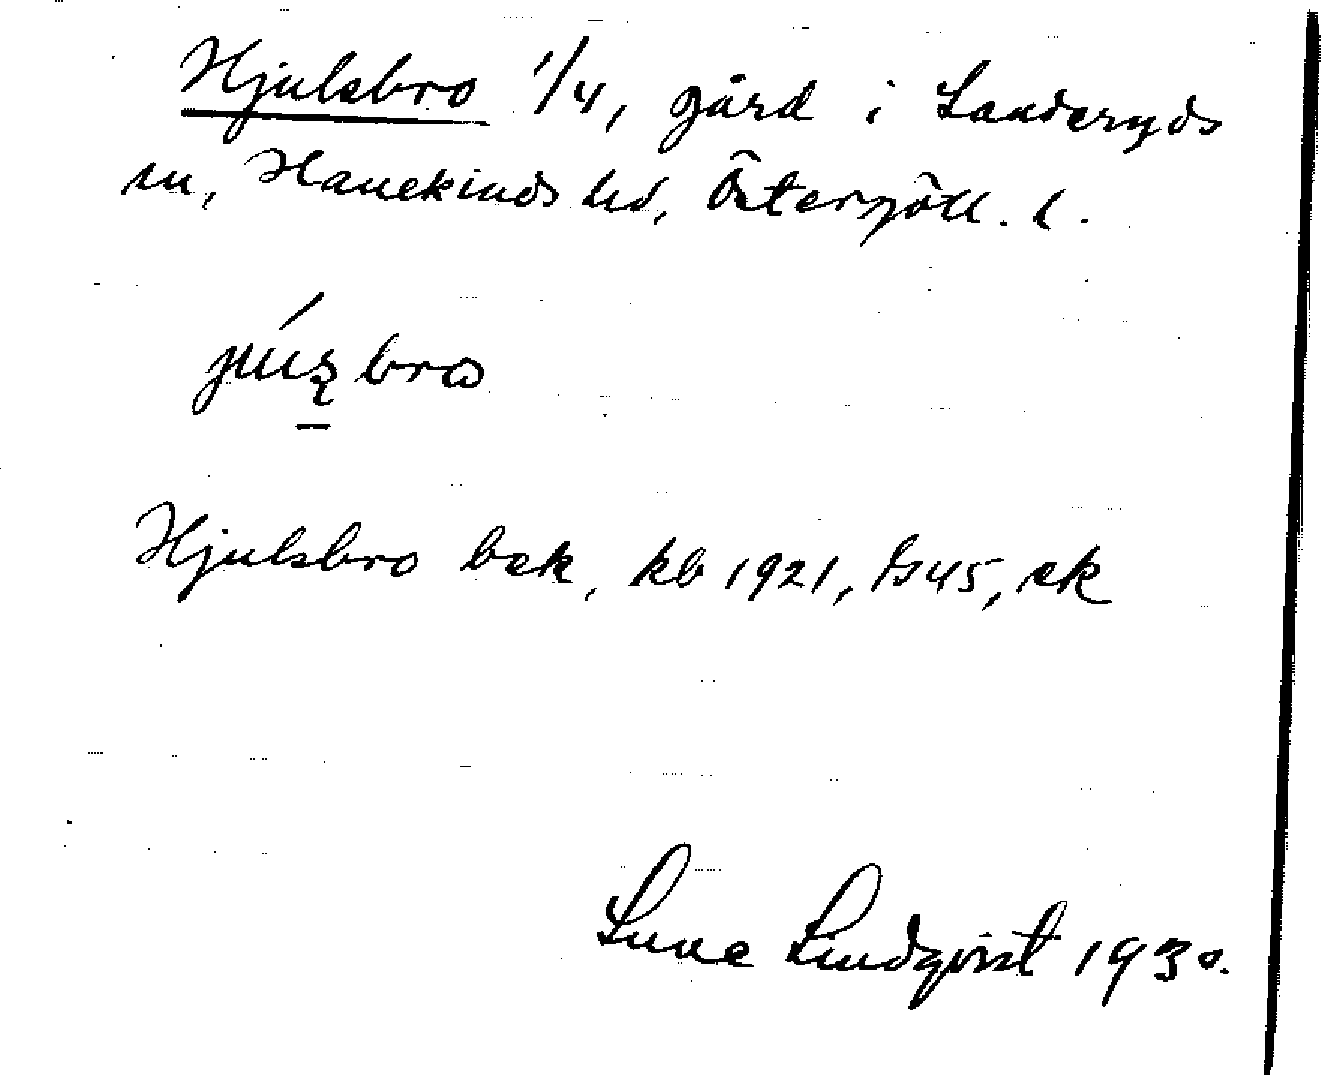 Hjulsbro 1/4, gård i Landeryds
sn, Hanekinds hd, Östergötl. l.
Hjulsbro bek, kb 1921, s 45, ek
Sune Lindqvist 1930.